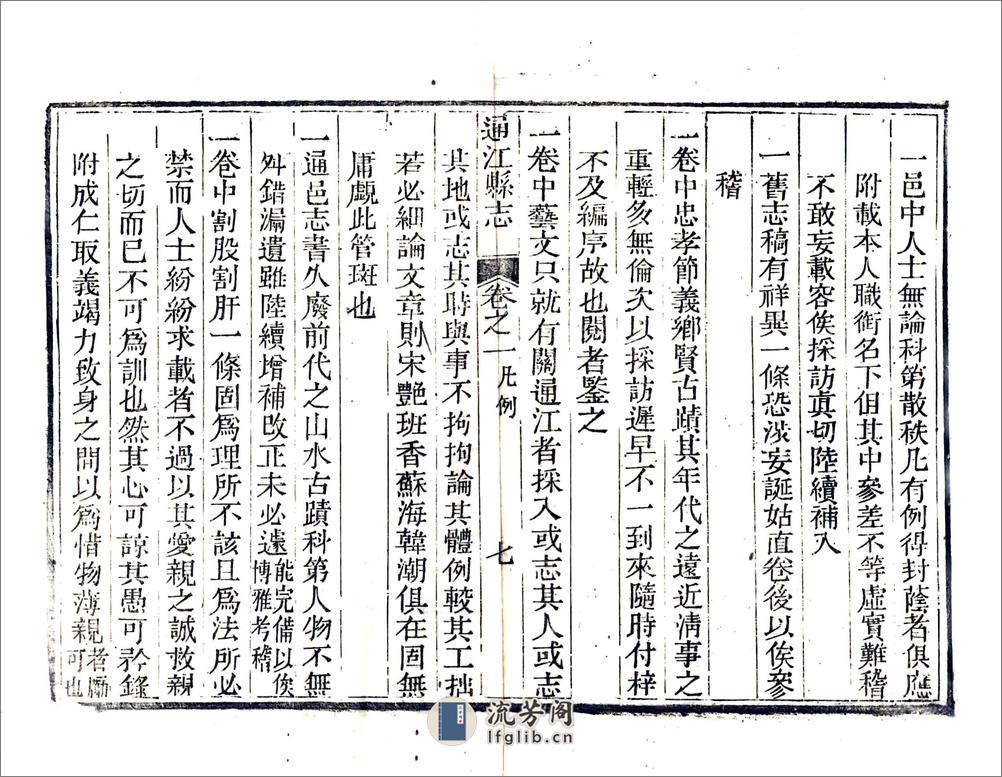 一邑中人士無論科第散秩凡有例得封蔭者俱應
附載本人職銜名下但其中參差不等虛實難稽
不敢妄載容俟採訪眞切陸續補入
一舊志稿有祥異一條恐涉妄誕姑直卷後以俟參
稽
一卷中忠孝節義鄉賢古蹟其年代之遠近淸事之
重輕多無倫次以採訪遲早不一到來隨時付梓
不及編序故也閱者鑒之
一卷中藝文只就有關通江者採入或志其人或志
通江縣志
卷之一 凡例
七
其地或志其時與事不拘拘論其體例較其工拙
若必細論文章則宋艷班香蘇海韓潮俱在固無
庸覷此管斑也
一通邑志書久廢前代之山水古蹟科第人物不無
舛錯漏遺雖陸續增補改正未必遽能完備以俟博雅考稽
一卷中割股割肝一條固爲理所不該且爲法所必
禁而人士紛紛求載者不過以其愛親之誠救親
之切而已不可爲訓也然其心可諒其愚可矜錄
附成仁取義竭力致身之間以爲惜物薄親者勵可也
流芳阁
lfglib.cn